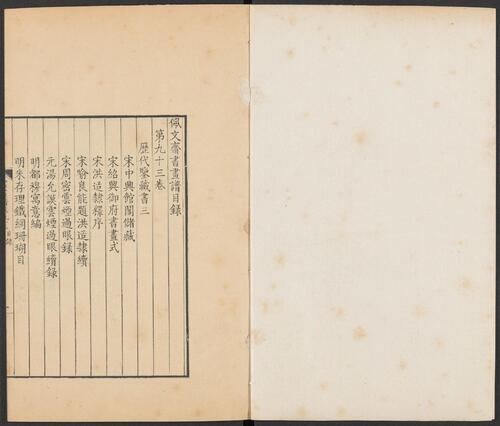 佩文齋書畫譜目錄
第九十三卷
歷代鑒藏書三
宋中興館閣儲藏
宋紹興御府書畫式
宋洪适隸釋序
宋喻良能題洪适隸續
宋周密雲煙過眼錄
元湯允謨雲煙過眼續錄
明都穆寓意編
明朱存理鐵網珊瑚目